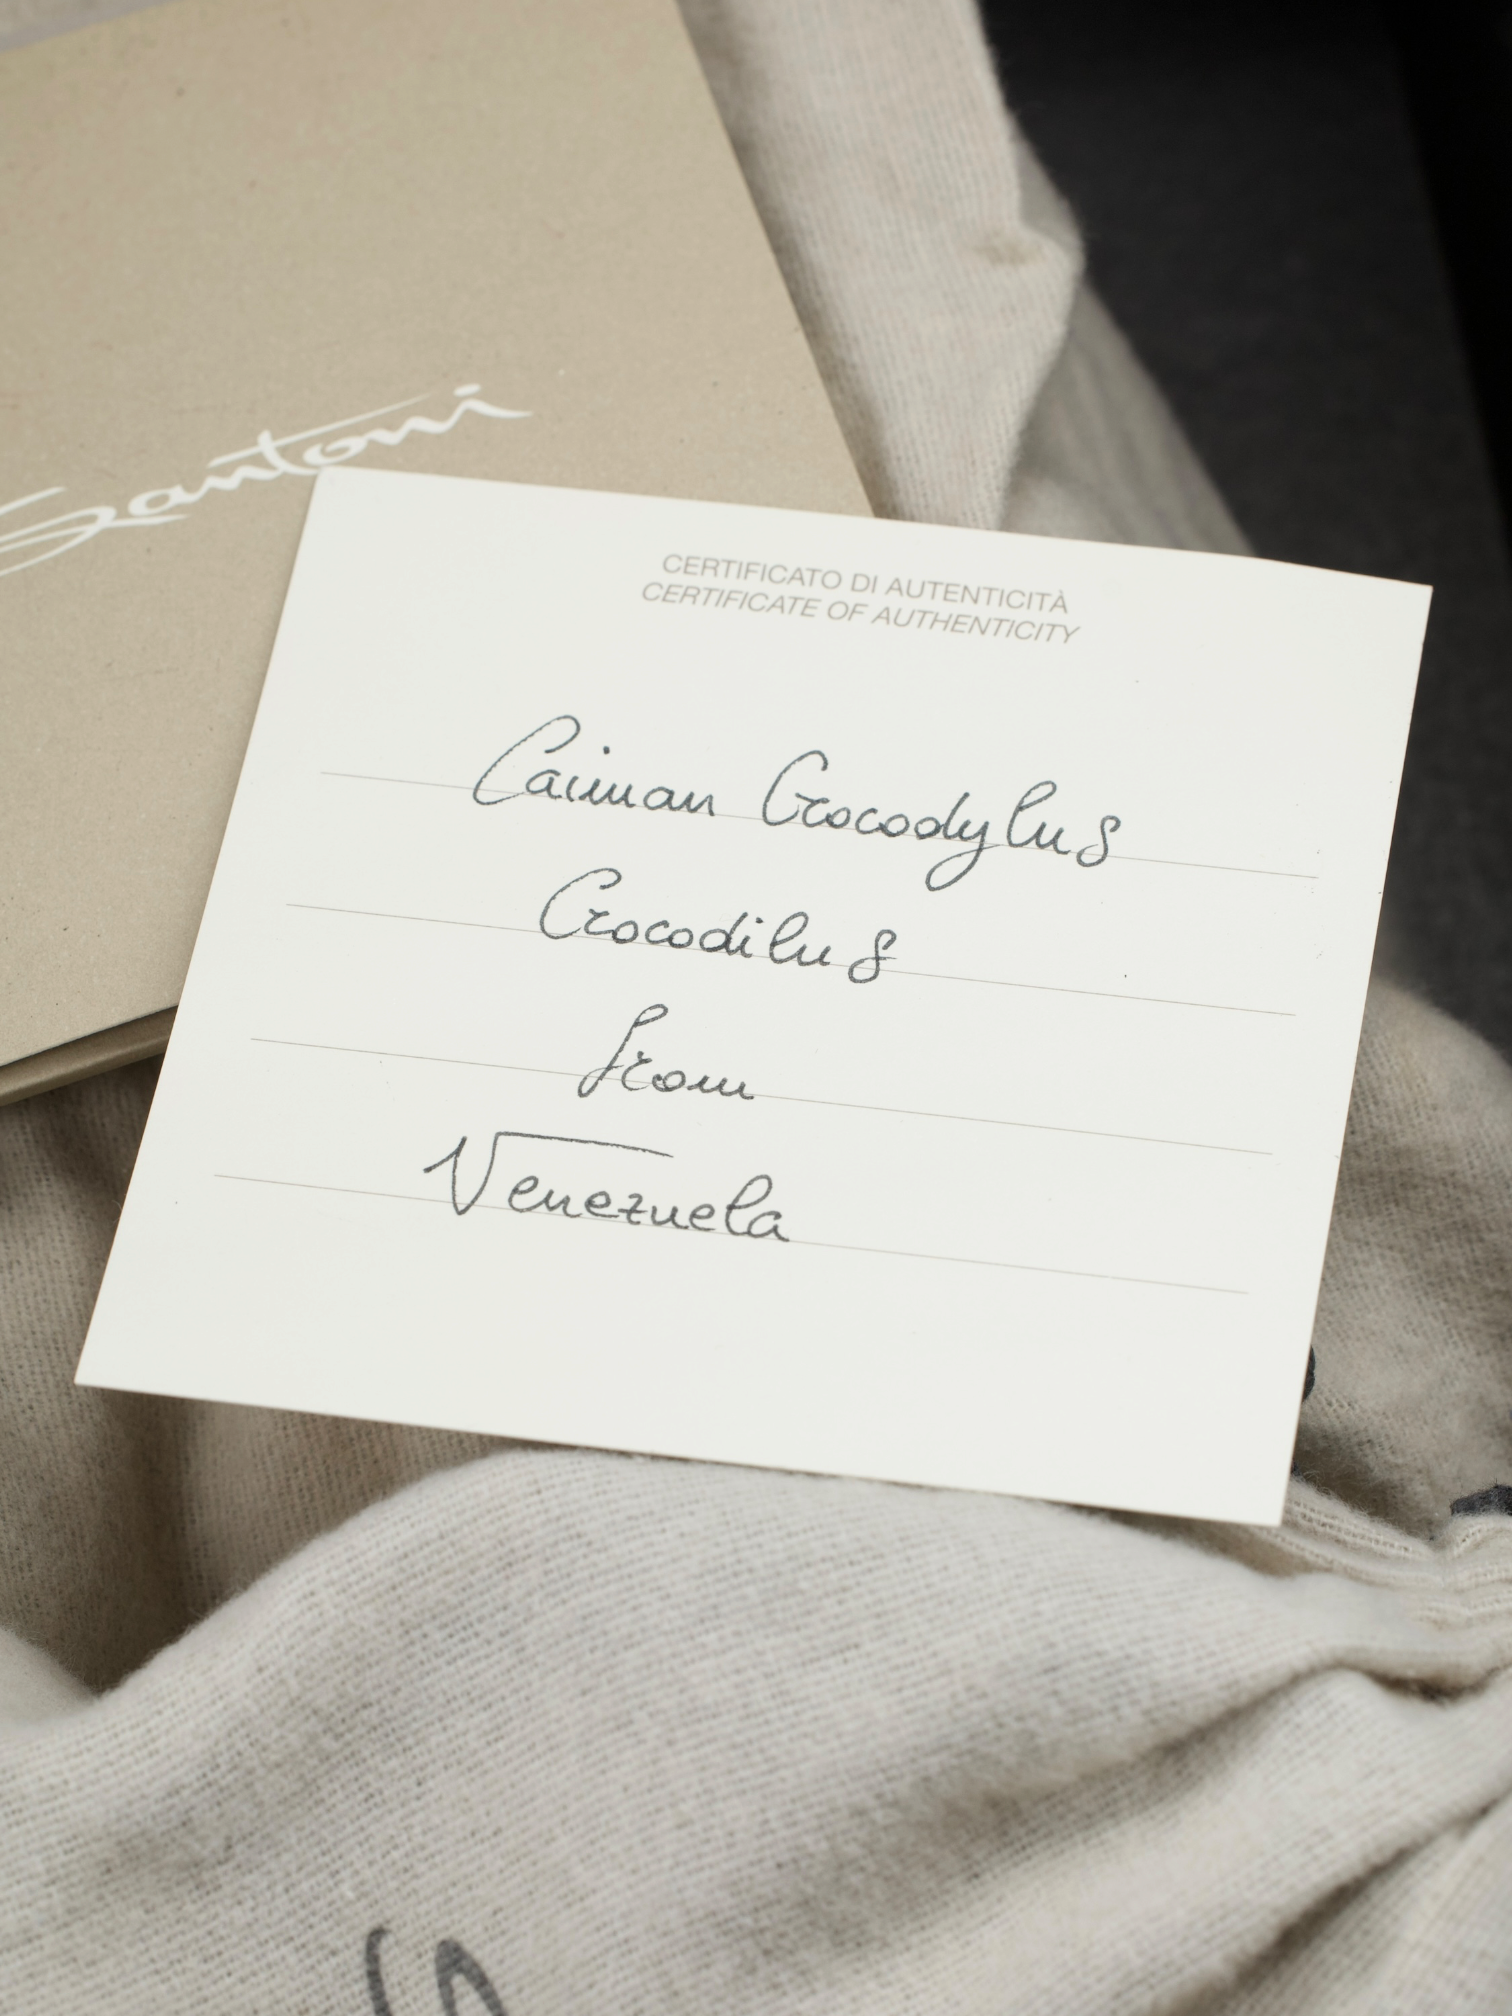 Santoni
CERTIFICATO DI AUTENTICITÀ
CERTIFICATE OF AUTHENTICITY
Caiman Crocodylus
Crocodilus
from
Venezuela